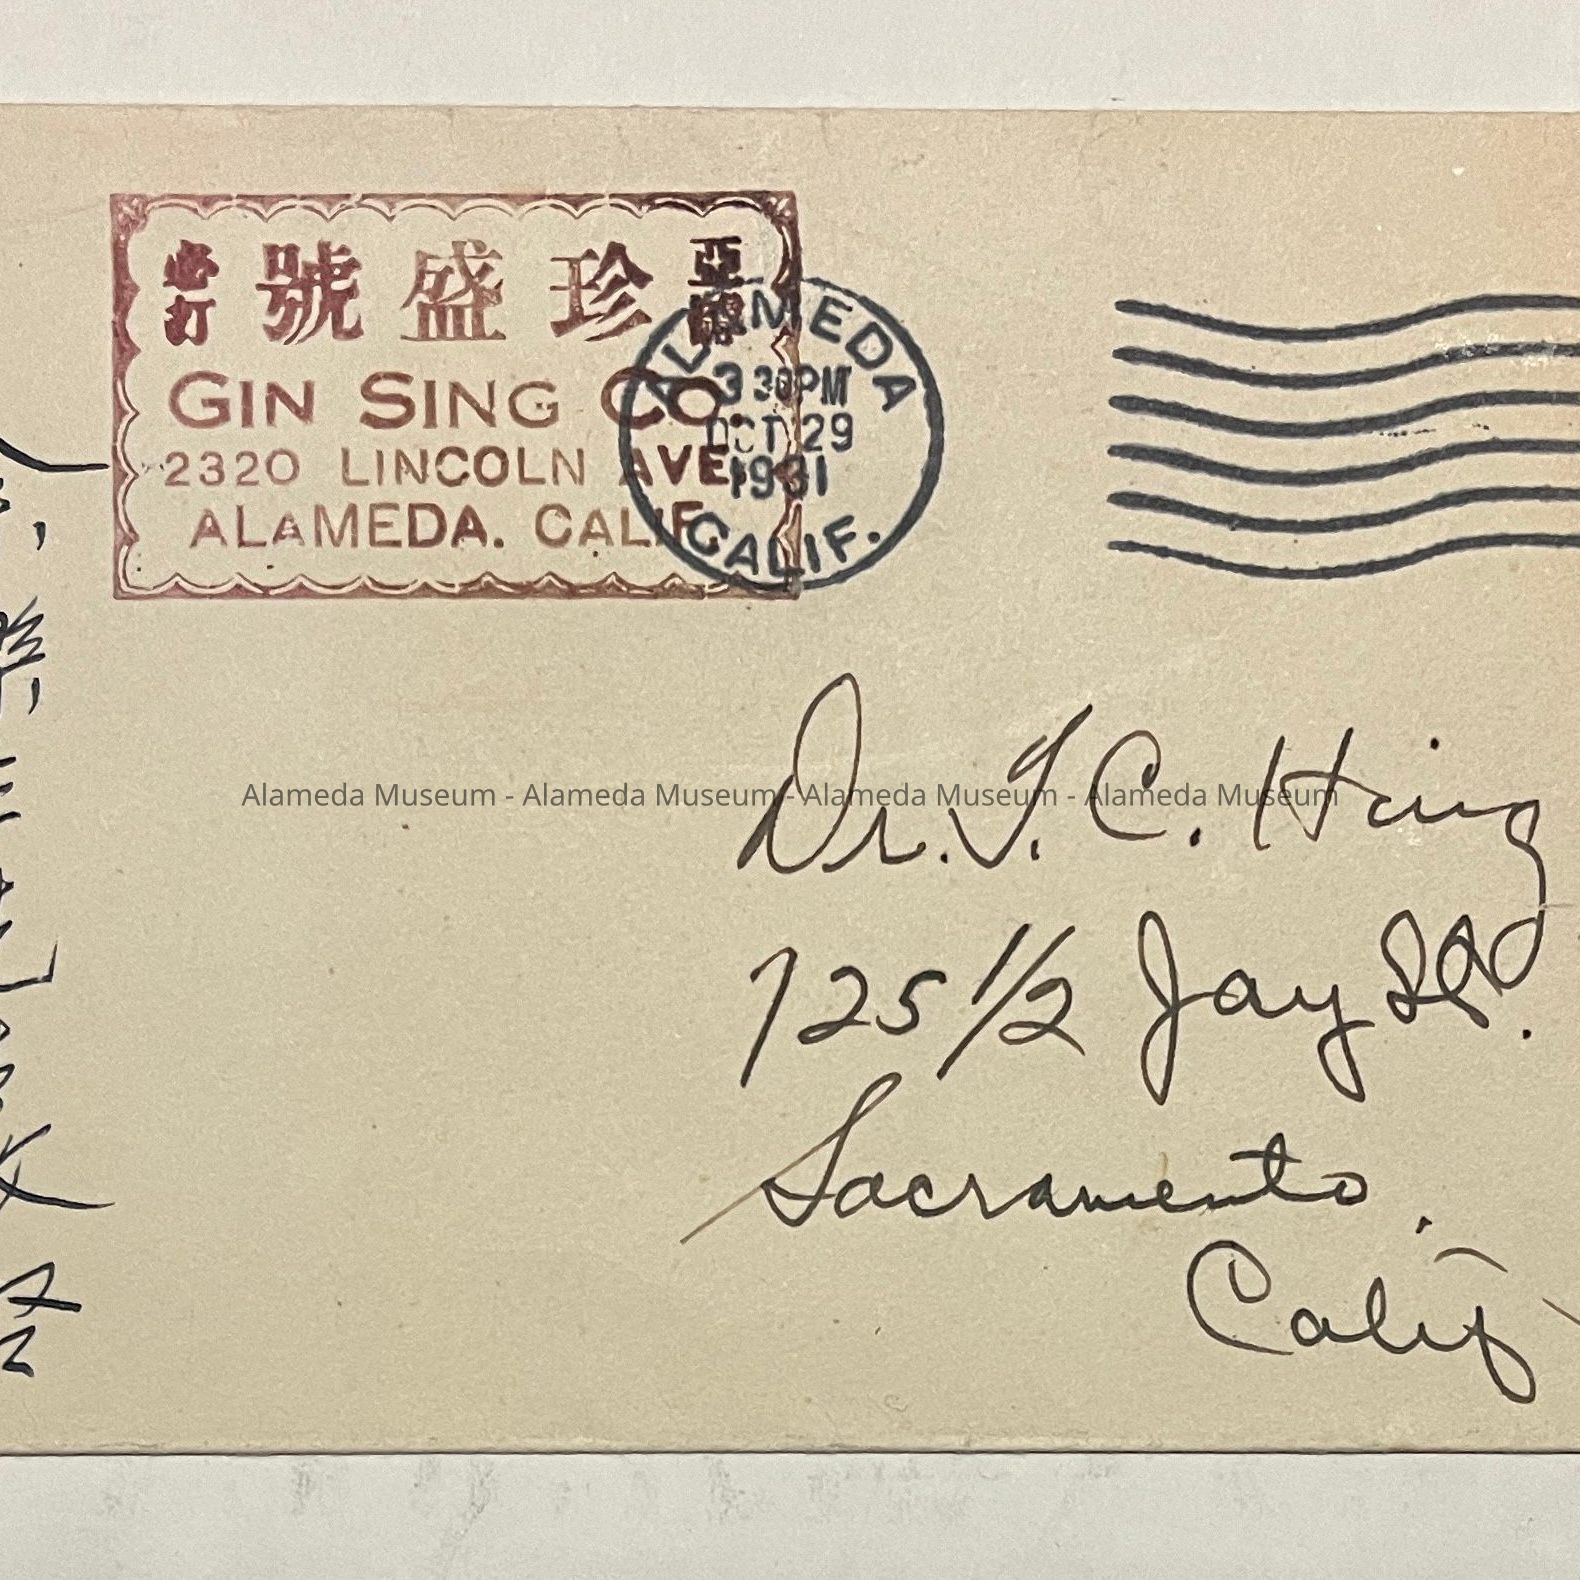 號盛珍
GIN SING CO.
2320 LINCOLN AVE.
ALAMEDA. CALIF.
ALAMEDA
3 30 PM
OCT 29
1931
CALIF.
Alameda Museum - Alameda Museum - Alameda Museum - Alameda Museum
Dr. T. C. Hing
725 1/2 Jay St.
Sacramento.
Calif